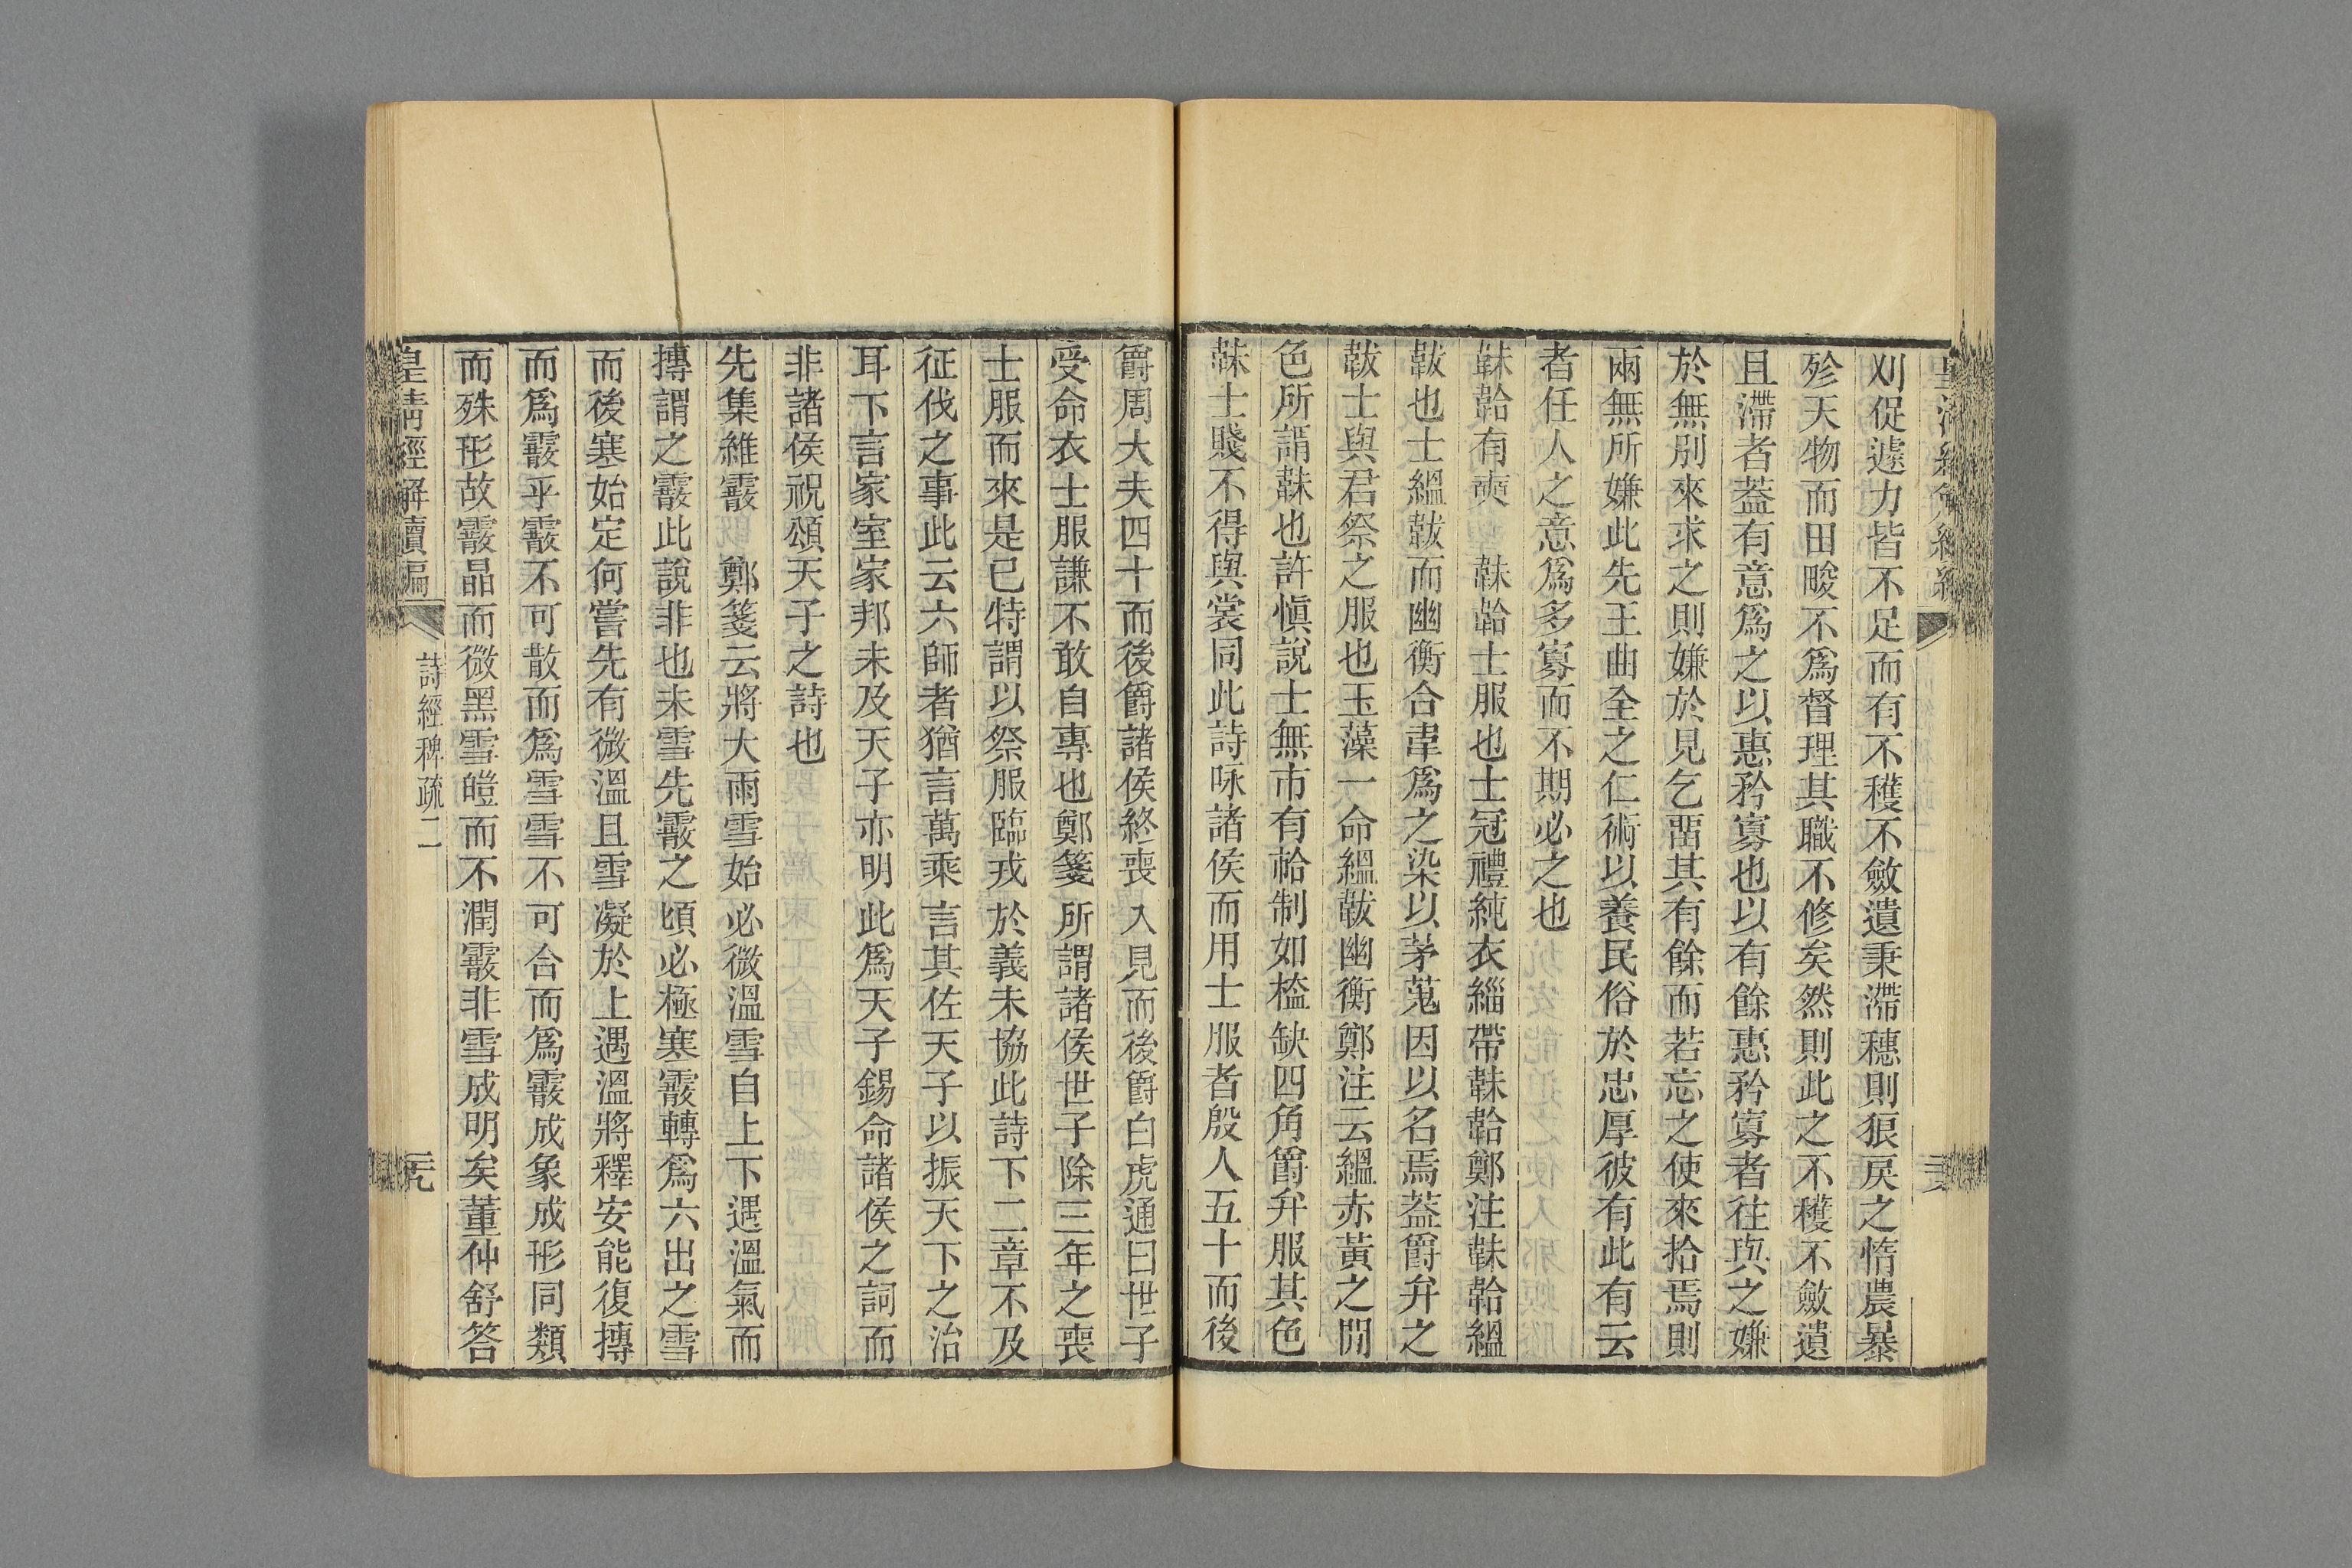 刈促遽力皆不足而有不穫不斂遺秉滯穗則狼戾之惰農暴
殄天物而田畯不爲督理其職不修矣然則此之不穫不斂遺
且滯者葢有意爲之以惠矜寡也以有餘惠矜寡者往與之嫌
於無別來求之則嫌於見乞畱其有餘而若忘之使來拾焉則
兩無所嫌此先王曲全之仁術以養民俗於忠厚彼有此有云
者任人之意爲多寡而不期必之也
韎韐有奭　韎韐士服也士冠禮純衣緇帶韎韐鄭注韎韐縕
韍也士縕韍而幽衡合韋爲之染以茅蒐因以名焉葢爵弁之
韍士與君祭之服也玉藻一命縕韍幽衡鄭注云縕赤黃之閒
色所謂韎也許愼說士無市有韐制如榼缺四角爵弁服其色
韎士賤不得與裳同此詩咏諸侯而用士服者殷人五十而後
爵周大夫四十而後爵諸侯終喪入見而後爵白虎通曰世子
受命衣士服謙不敢自專也鄭箋所謂諸侯世子除三年之喪
士服而來是已特謂以祭服臨戎於義未協此詩下二章不及
征伐之事此云六師者猶言萬乘言其佐天子以振天下之治
耳下言家室家邦未及天子亦明此爲天子錫命諸侯之詞而
非諸侯祝頌天子之詩也
先集維霰　鄭箋云將大雨雪始必微溫雪自上下遇溫氣而
摶謂之霰此說非也未雪先霰之頃必極寒霰轉爲六出之雪
而後寒始定何嘗先有微溫且雪凝於上遇溫將釋安能復摶
而爲霰乎霰不可散而爲雪雪不可合而爲霰成象成形同類
而殊形故霰晶而微黑雪皚而不潤霰非雪成明矣董仲舒答
皇淸經解續編
詩經稗疏二
二九